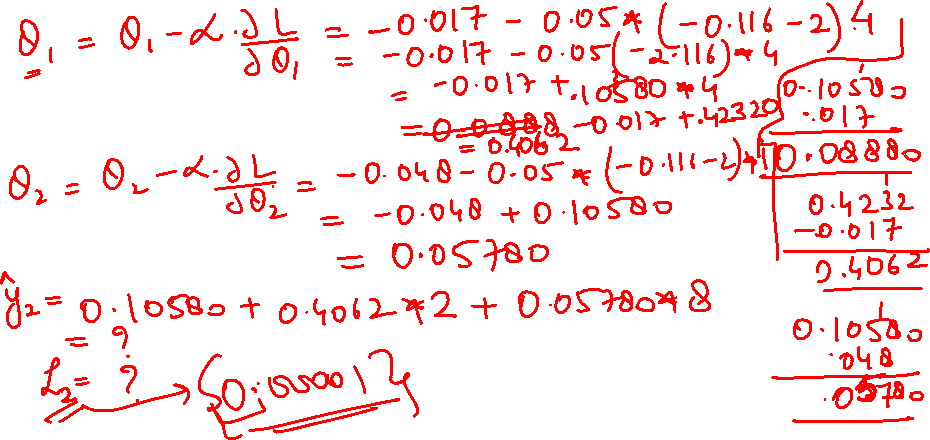 θ₁ = θ₁ - α · ∂L/∂θ₁ = -0.017 - 0.05 * (-0.116 - 2) · 4
= -0.017 - 0.05 (-2.116) * 4
= -0.017 + .10580 * 4
= 0.0888 - 0.017 + .42320
= 0.4062
θ₂ = θ₂ - α · ∂L/∂θ₂ = -0.048 - 0.05 * (-0.116 - 2) * 1
= -0.048 + 0.10580
= 0.05780
ŷ₂ = 0.10580 + 0.4062 * 2 + 0.05780 * 8
= ?
L₂ = ? → {0.000001}
0.10580
.017
0.08880
0.4232
-0.017
0.4062
0.10580
.048
.05780